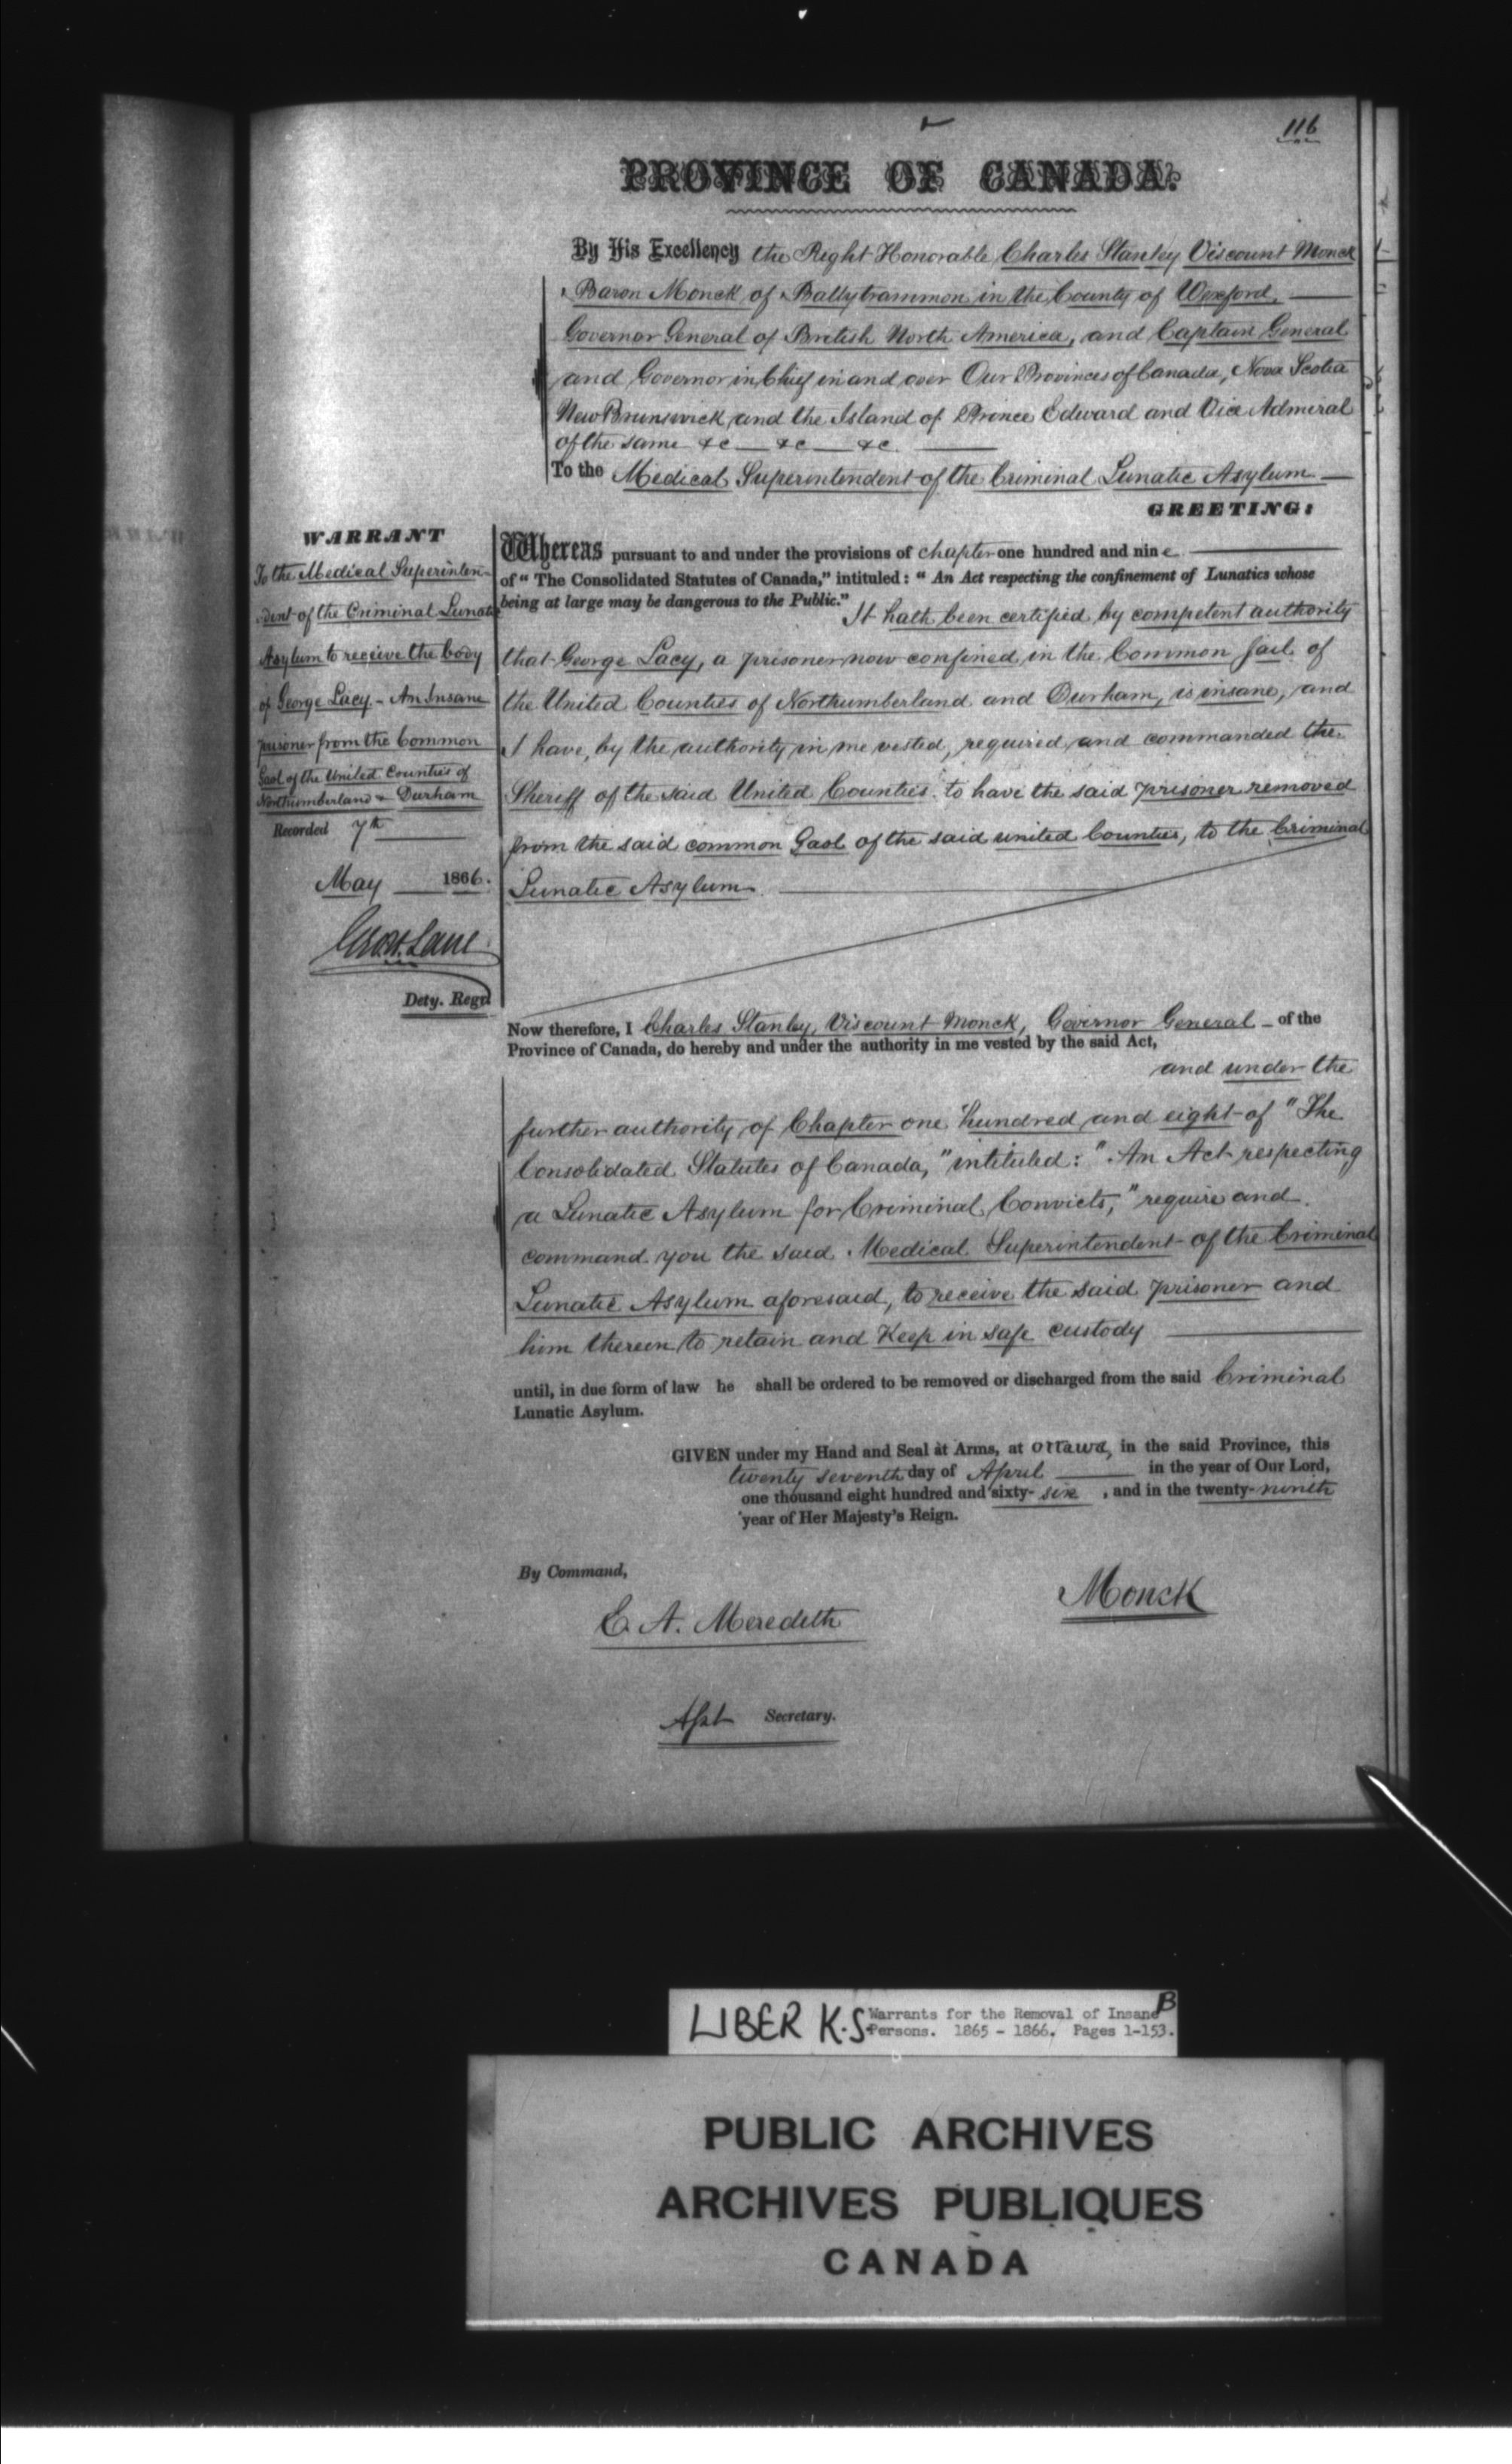 116
PROVINCE OF CANADA.
By His Excellency the Right Honorable Charles Stanley Viscount Monck
Baron Monck of Ballytrammon in the County of Wexford,
Governor General of British North America, and Captain General
and Governor in Chief in and over Our Provinces of Canada, Nova Scotia
New Brunswick, and the Island of Prince Edward and Vice Admiral
of the same &c — &c — &c.
To the Medical Superintendent of the Criminal Lunatic Asylum —
GREETING:
WARRANT
To the Medical Superinten-
dent of the Criminal Lunatic
Asylum to receive the body
of George Lacy - An Insane
prisoner from the Common
Gaol of the United Counties of
Northumberland & Durham
Recorded 7th
May 1866.
Dety. Regr.
Whereas pursuant to and under the provisions of chapter one hundred and nine
of "The Consolidated Statutes of Canada," intituled: "An Act respecting the confinement of Lunatics whose
being at large may be dangerous to the Public."
It hath been certified by competent authority
that George Lacy, a prisoner now confined in the Common Jail of
the United Counties of Northumberland and Durham, is insane, and
I have, by the authority in me vested, required and commanded the
Sheriff of the said United Counties to have the said prisoner removed
from the said common Gaol of the said united Counties, to the Criminal
Lunatic Asylum.
Now therefore, I Charles Stanley, Viscount Monck, Governor General — of the
Province of Canada, do hereby and under the authority in me vested by the said Act,
and under the
further authority of Chapter one hundred and eight of "The
Consolidated Statutes of Canada," intituled: "An Act respecting
a Lunatic Asylum for Criminal Convicts," require and
command you the said Medical Superintendent of the Criminal
Lunatic Asylum aforesaid, to receive the said prisoner and
him therein to retain and Keep in safe custody
until, in due form of law he shall be ordered to be removed or discharged from the said Criminal
Lunatic Asylum.
GIVEN under my Hand and Seal at Arms, at Ottawa, in the said Province, this
twenty seventh day of April in the year of Our Lord,
one thousand eight hundred and sixty-six, and in the twenty-ninth
year of Her Majesty's Reign.
By Command,
Monck
E. A. Meredith
Asst Secretary.
LIBER K.S. Warrants for the Removal of Insane B
Persons. 1865 - 1866. Pages 1-153.
PUBLIC ARCHIVES
ARCHIVES PUBLIQUES
CANADA